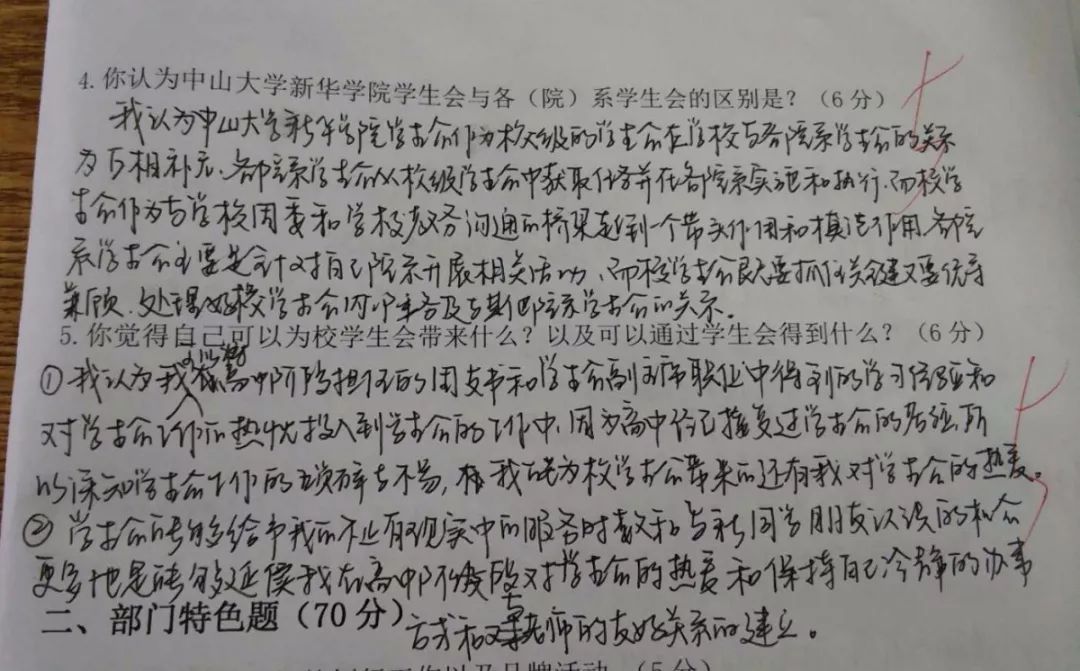 4.你认为中山大学新华学院学生会与各（院）系学生会的区别是？（6分）
我认为中山大学新华学院学生会作为校级的学生会在学校与各院系学生会的关系
为互相补充、各院系学生会从校级学生会中获取任务并在各院系实施和执行，而校学
生会作为与学校团委和学校教务沟通的桥梁起到一个带头作用和模范作用，各院
系学生会主要是针对自己院系开展相关活动、而校学生会既要抓住关键又要统筹
兼顾，处理好校学生会内部事务及与其他院系学生会的关系。
5.你觉得自己可以为校学生会带来什么？以及可以通过学生会得到什么？（6分）
①我认为我 高中阶段担任的团支书和学生会副主席职位中得到的学习经验和
对学生会工作的热忱投入到学生会的工作中，因为高中 学生会的 所
以深知学生会工作的 不易，我能为校学生会带来的还有我对学生会的热爱。
②学生会能够给予我的不止有现实中的服务时数和与新同学朋友认识的机会
更多地是能够延续我在高中阶段对学生会的热爱和保持自己冷静的办事
二、部门特色题（70分）
方式和与老师的友好关系的建立。
（5分）